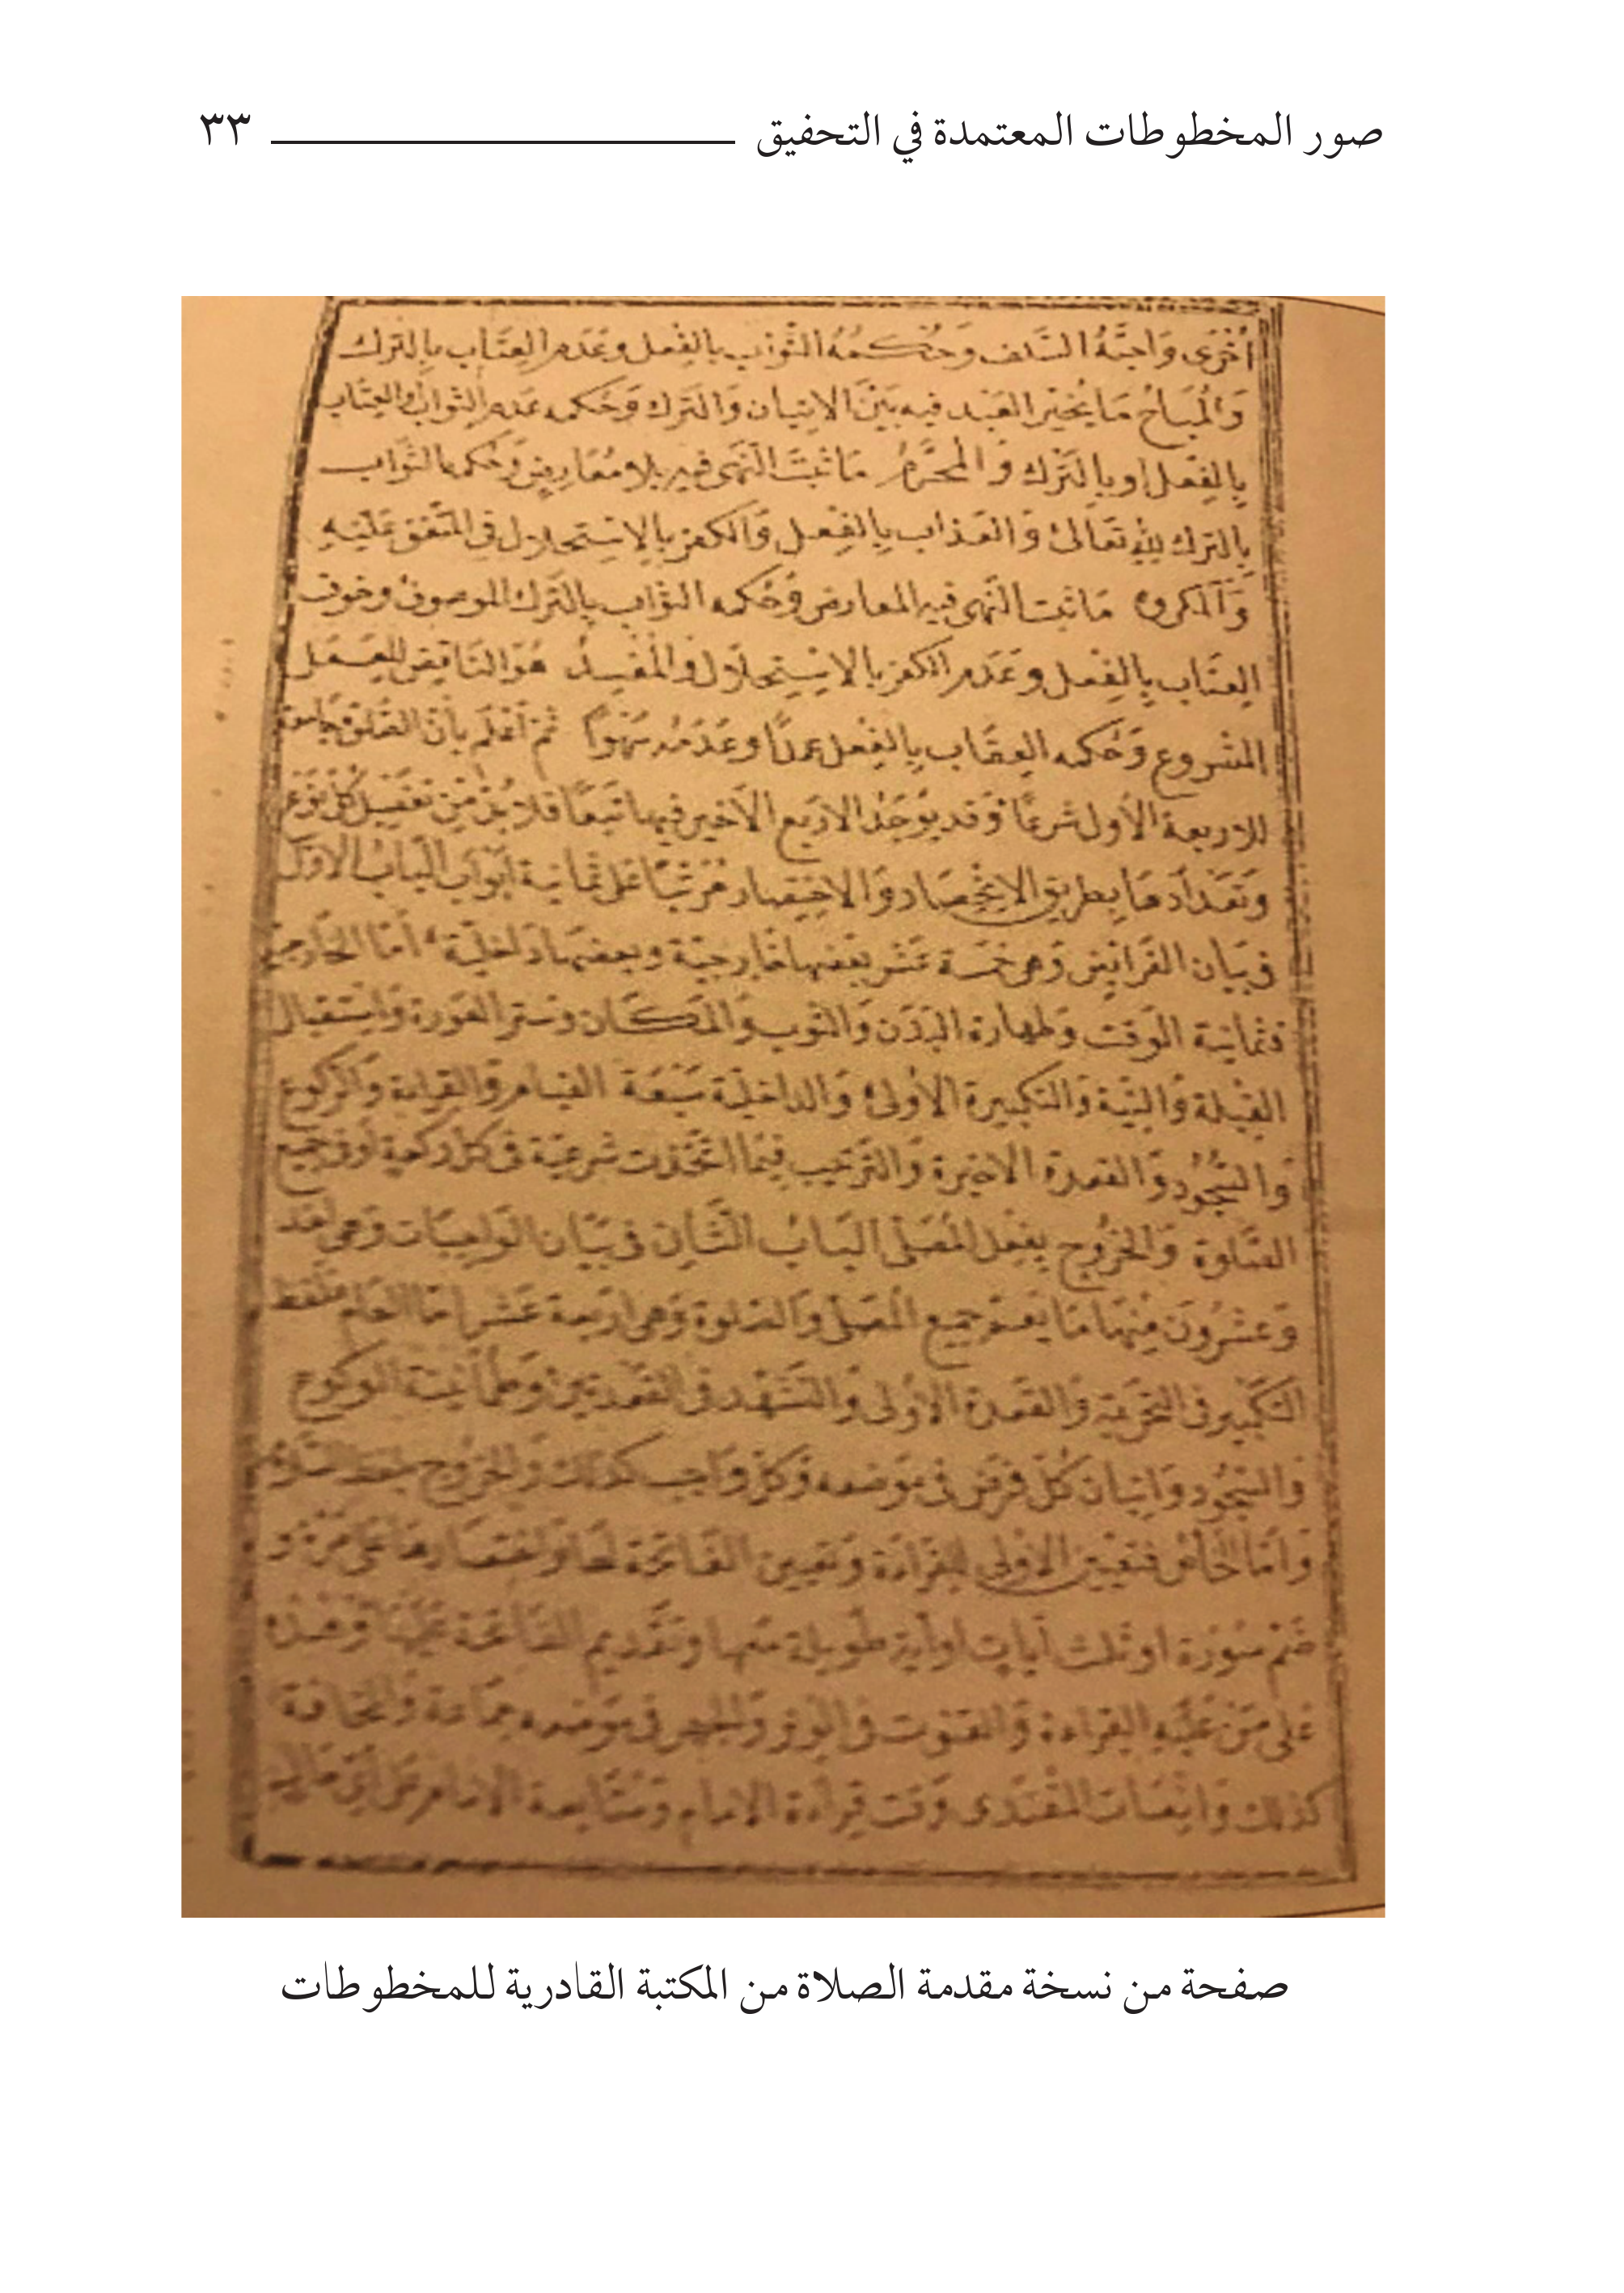 صور المخطوطات المعتمدة في التحفيق ٣٣
اُخْرَى وَاَحَبَّهُ السَّلَف وَحُكْمُهُ الثَّوَاب بِالْفِعل وعَدَم العِتَاب بِالتَّرك
وَالْمُبَاحُ مَا يُخَيَّر العَبْد فيه بَيْنَ الاتيان وَالتَرك وَحُكمه عَدم الثواب والعِتَاب
بِالفِعْل او بِالتَّرْك وَالْمُحَرَّمُ مَا ثَبَتَ النَّهى فيه بِلا مُعَارِضٍ وَحُكمه الثَّوَاب
بِالترك لِلّٰهِ تَعَالىٰ وَالعَذاب بِالفِعل وَالكفر بِالاسْتِحلال فى المُتَّفَق عَلَيْهِ
وَالمَكروه مَا ثبت النَّهى فيه المعارض وَحُكمه الثواب بِالتَّرك الموصوف وخوف
العِتَاب بِالفِعل وَعَدَم الكفر بِالاسْتِحلَال وَالْمُفْسِدُ هُوَ النَّاقِض للعَمَل
المَشروع وَحُكمه العِقَاب بِالفِعل عمدًا وعَدَمُه سَهْوًا ثمّ اعْلم بأنّ الصّلوة جامعة
للاربعة الأول شرعًا وَقد يوجَدُ الاربَع الاخير فيها تَبَعًا فلا بُدَّ مِنْ تفصيل كُلّ نوع
وَتَعْدَادهَا بِطريق الاِنْحِصَار وَالاختصار مُرَتَّبًا عَلى ثمانية اَبْوَاب البَابُ الاوّل
فى بيَان الفَرائض وَهى خمسَة عَشر بعضها خَارجيّة وبعضهَا دَاخليّة أمّا الخارجيّة
فثمانية الوَقت وَطهارة البَدَن وَالثوب وَالمَكَان وَستر العَورة وَاستقبال
القِبلة وَالنِيّة وَالتكبيرة الأولىٰ وَالداخليّة سَبْعَة القيام وَالقراءة وَالرّكوع
وَالسُّجُود وَالقعدة الاخيرة وَالتَرتيب فيمَا اتّحَدَت شرعيّة فى كلّ ركعة او فى جميع
الصَّلوة وَالخُرُوج بِفعل المُصَلّى البَابُ الثَّانى فى بَيَان الواجبات وَهى احد
وَعشرُونَ مِنْهَا مَا يَعُمّ جميع المُصَلّى وَالصَلوة وَهى اربعة عَشر امّا العام فلفظ
التكبير فى التحريمة وَالقعدة الاولى وَالتشهد فى القعدتين وَطمأنينة الركوع
وَالسّجود وَاتيان كُلّ فرض فى مَوْضعه وَكلّ واجب كذلك وَالخروج بلفظ السّلام
وَامّا الخَاصّ فتعيين الاولى للقراءة وَتعيين الفَاتحة لهَا وَاختصارها عَلى مرّة و
ضَمّ سُورَة او ثلث آيات او آية طويلة معها وتقديم الفاتحة عليْها وَهذه
عَلى مَنْ عليْه القراءة وَالقنوت فى الوتر وَالجهر فى مَوْضعه جماعة وَالمخَافتة
كذلك وَانصَات المقتدى وَقت قراءة الامام وَمتابعة الامام عَلى اىّ حال
صفحة من نسخة مقدمة الصلاة من المكتبة القادرية للمخطوطات